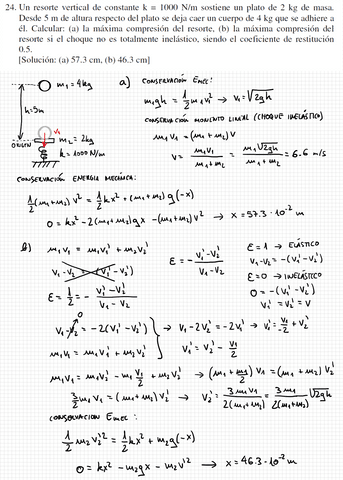 24. Un resorte vertical de constante k = 1000 N/m sostiene un plato de 2 kg de masa.
Desde 5 m de altura respecto del plato se deja caer un cuerpo de 4 kg que se adhiere a
él. Calcular: (a) la máxima compresión del resorte, (b) la máxima compresión del
resorte si el choque no es totalmente inelástico, siendo el coeficiente de restitución
0.5.
[Solución: (a) 57.3 cm, (b) 46.3 cm]
m₁ = 4kg
h=5m
V₁
m₂ = 2kg
ORIGEN
k = 1000 N/m
a) CONSERVACIÓN EMEC:
m₁gh = 1/2 m₁v₁² → V₁ = √2gh
CONSERVACIÓN MOMENTO LINEAL (CHOQUE INELÁSTICO)
m₁V₁ = (m₁+m₂) V
V = m₁V₁/(m₁+m₂) = m₁√2gh/(m₁+m₂) = 6.6 m/s
CONSERVACIÓN ENERGIA MECÁNICA:
1/2 (m₁+m₂) V² = 1/2 kx² + (m₁+m₂) g(-x)
0 = kx² - 2(m₁+m₂)gx - (m₁+m₂)V² → x = 57.3 · 10⁻² m
b) m₁V₁ = m₁V₁' + m₂V₂'
V₁-V₂ = -(V₁'-V₂')
ε = - (V₁'-V₂')/(V₁-V₂)
ε=1 → ELÁSTICO
V₁-V₂ = -(V₁'-V₂')
ε=0 → INELÁSTICO
0 = -(V₁'-V₂')
V₁' = V₂' = V
ε = 1/2 = - (V₁'-V₂')/(V₁-V₂)
V₁-V₂ = -2(V₁'-V₂') → V₁-2V₂' = -2V₁' → V₁' = V₁/-2 + V₂'
0
m₁V₁ = m₁V₁' + m₂V₂'
V₁' = V₂' - V₁/2
m₁V₁ = m₁V₂' - m₁ V₁/2 + m₂V₂' → (m₁ + m₁/2) V₁ = (m₁+m₂) V₂'
3/2 m₁V₁ = (m₁+m₂) V₂' → V₂' = 3m₁V₁/2(m₁+m₂) = 3m₁/2(m₁+m₂) √2gh
CONSERVACION EMEC:
1/2 m₂V₂'² = 1/2 kx² + m₂g(-x)
0 = kx² - m₂gx - m₂V'² → x = 46.3·10⁻² m